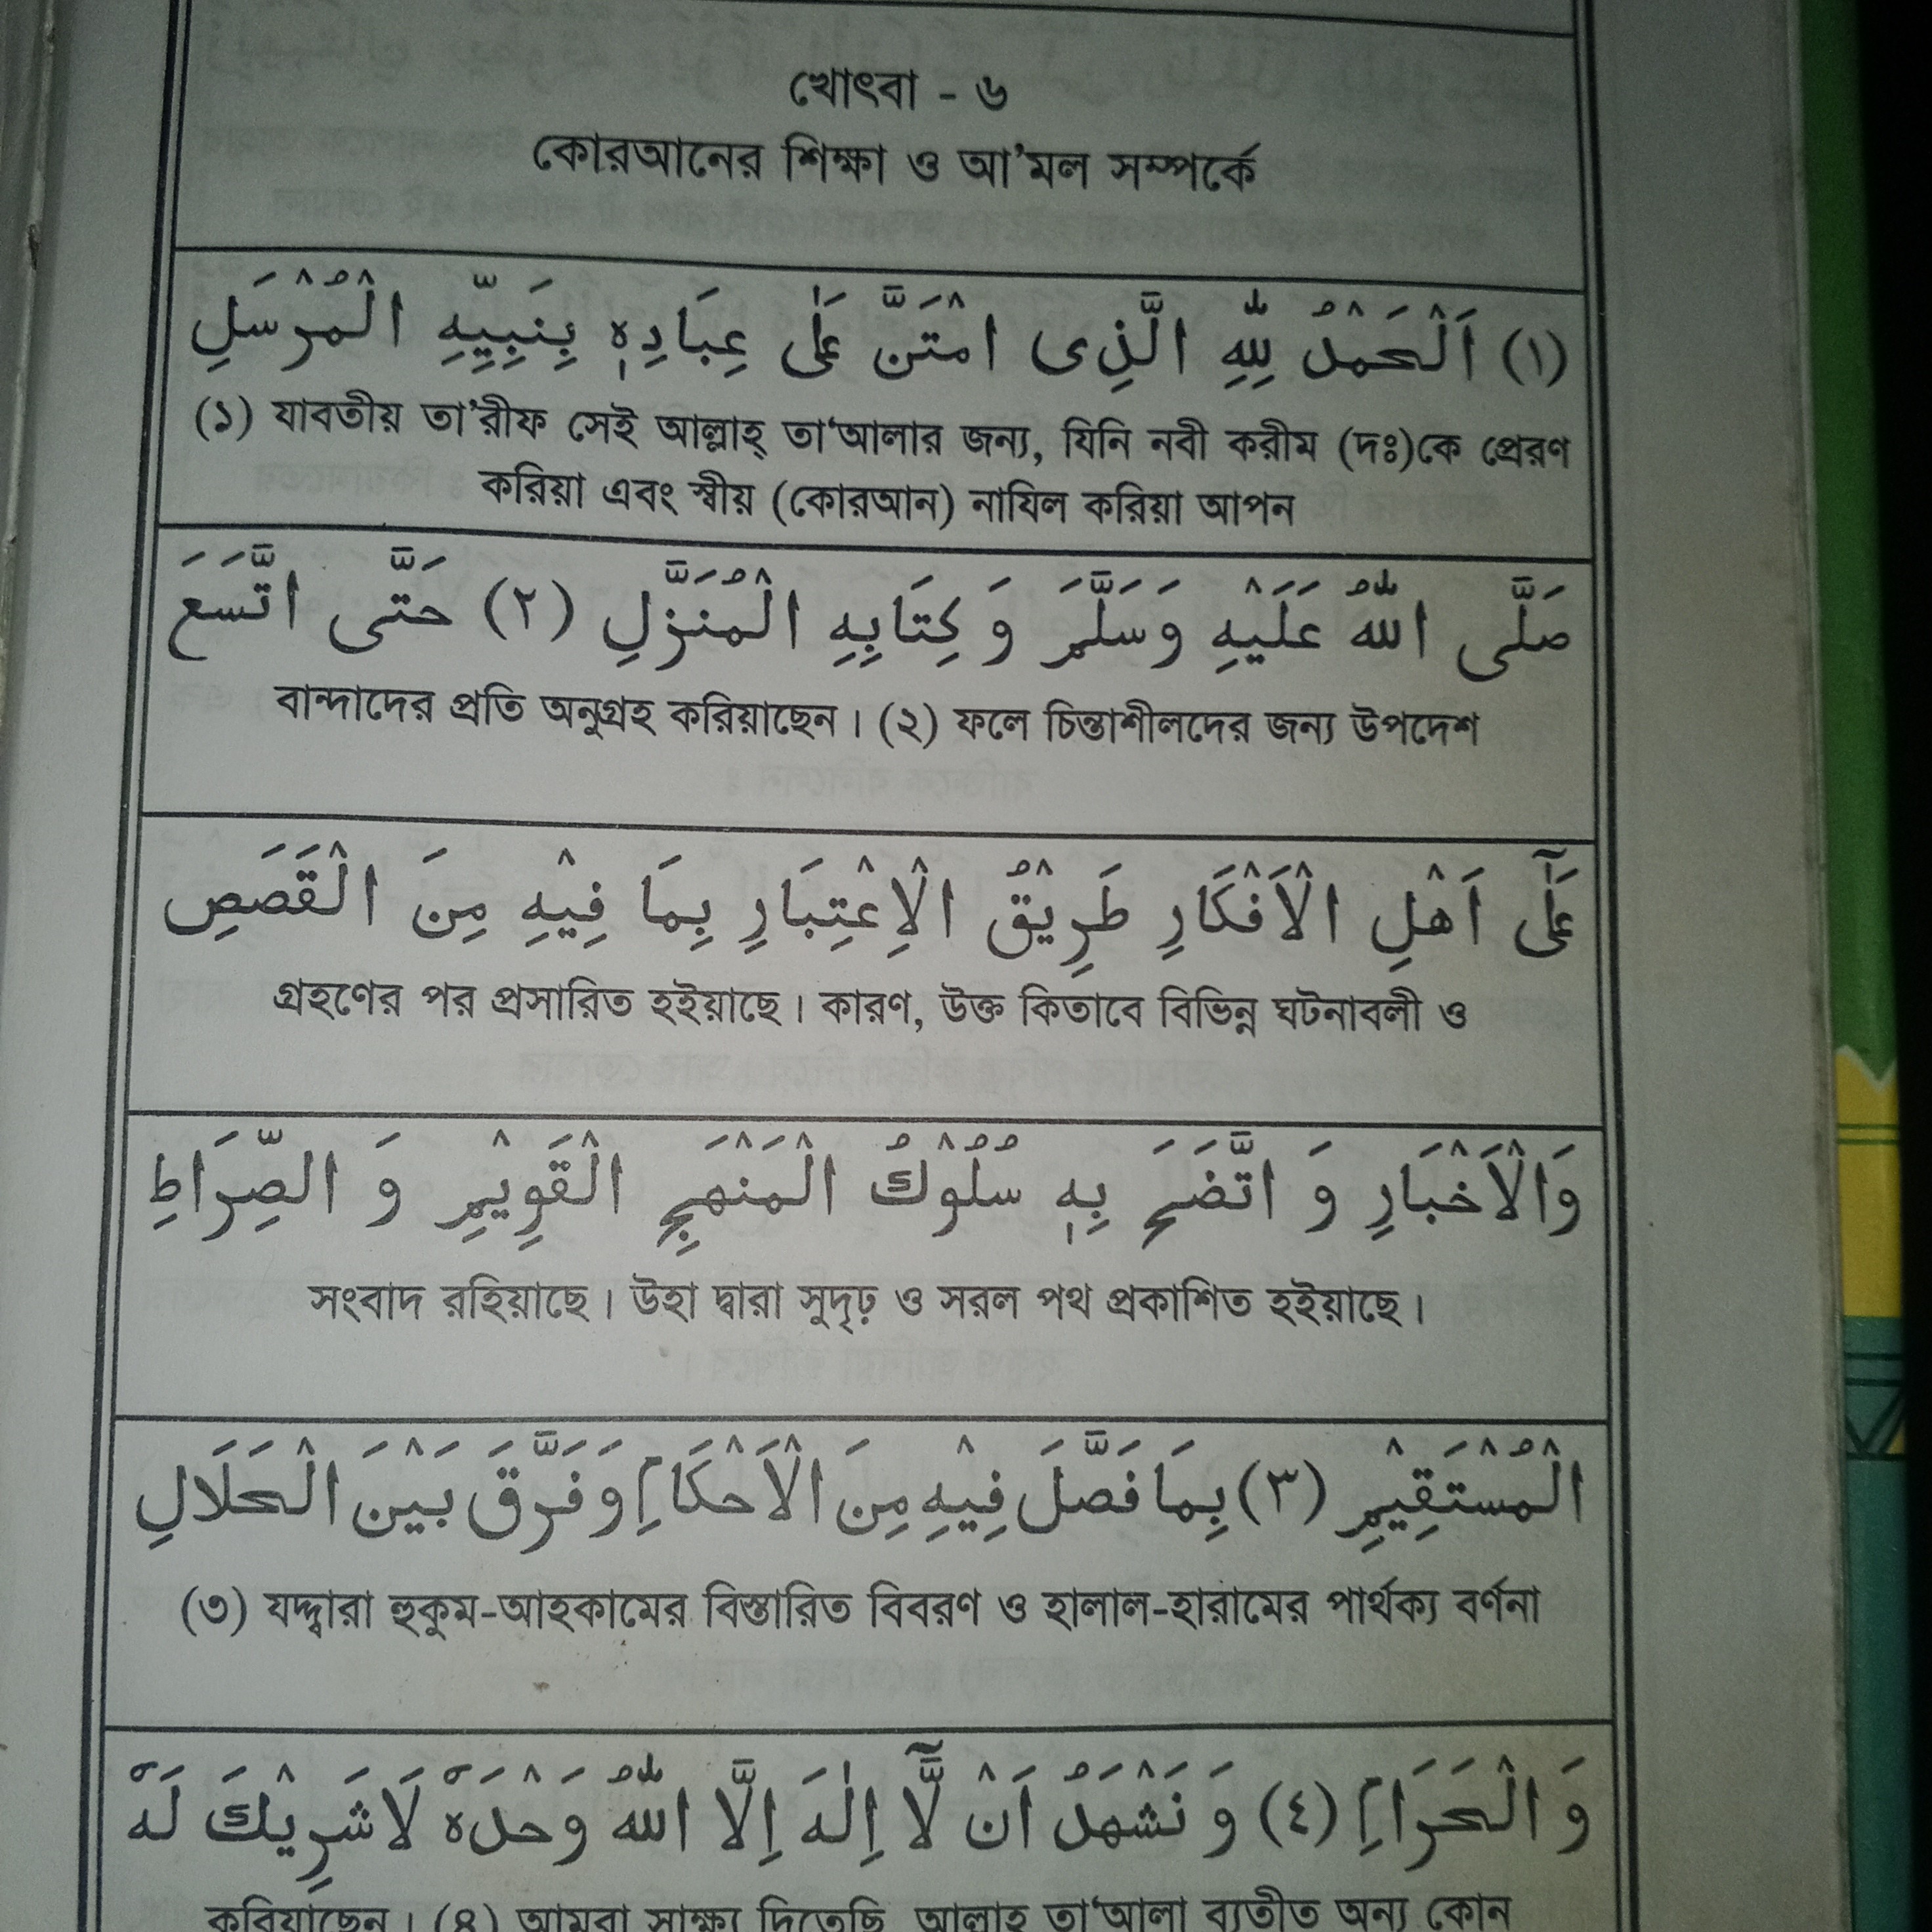 খোৎবা - ৬
কোরআনের শিক্ষা ও আ'মল সম্পর্কে
(١) اَلْحَمْدُ لِلّٰهِ الَّذِى امْتَنَّ عَلٰى عِبَادِهٖ بِنَبِيِّهِ الْمُرْسَلِ
(১) যাবতীয় তা'রীফ সেই আল্লাহ্ তা'আলার জন্য, যিনি নবী করীম (দঃ)কে প্রেরণ
করিয়া এবং স্বীয় (কোরআন) নাযিল করিয়া আপন
صَلَّى اللّٰهُ عَلَيْهِ وَسَلَّمَ وَ كِتَابِهِ الْمُنَزَّلِ (٢) حَتَّى اتَّسَعَ
বান্দাদের প্রতি অনুগ্রহ করিয়াছেন। (২) ফলে চিন্তাশীলদের জন্য উপদেশ
عَلٰٓى اَهْلِ الْاَفْكَارِ طَرِيْقُ الْاِعْتِبَارِ بِمَا فِيْهِ مِنَ الْقَصَصِ
গ্রহণের পর প্রসারিত হইয়াছে। কারণ, উক্ত কিতাবে বিভিন্ন ঘটনাবলী ও
وَالْاَخْبَارِ وَ اتَّضَحَ بِهٖ سُلُوْكُ الْمَنْهَجِ الْقَوِيْمِ وَ الصِّرَاطِ
সংবাদ রহিয়াছে। উহা দ্বারা সুদৃঢ় ও সরল পথ প্রকাশিত হইয়াছে।
الْمُسْتَقِيْمِ (٣) بِمَا فَصَّلَ فِيْهِ مِنَ الْاَحْكَامِ وَفَرَّقَ بَيْنَ الْحَلَالِ
(৩) যদ্দ্বারা হুকুম-আহকামের বিস্তারিত বিবরণ ও হালাল-হারামের পার্থক্য বর্ণনা
وَ الْحَرَامِ (٤) وَ نَشْهَدُ اَنْ لَّآ اِلٰهَ اِلَّا اللّٰهُ وَحْدَهٗ لَاشَرِيْكَ لَهٗ
করিয়াছেন। (৪) আমরা সাক্ষ্য দিতেছি, আল্লাহ্ তা'আলা ব্যতীত অন্য কোন